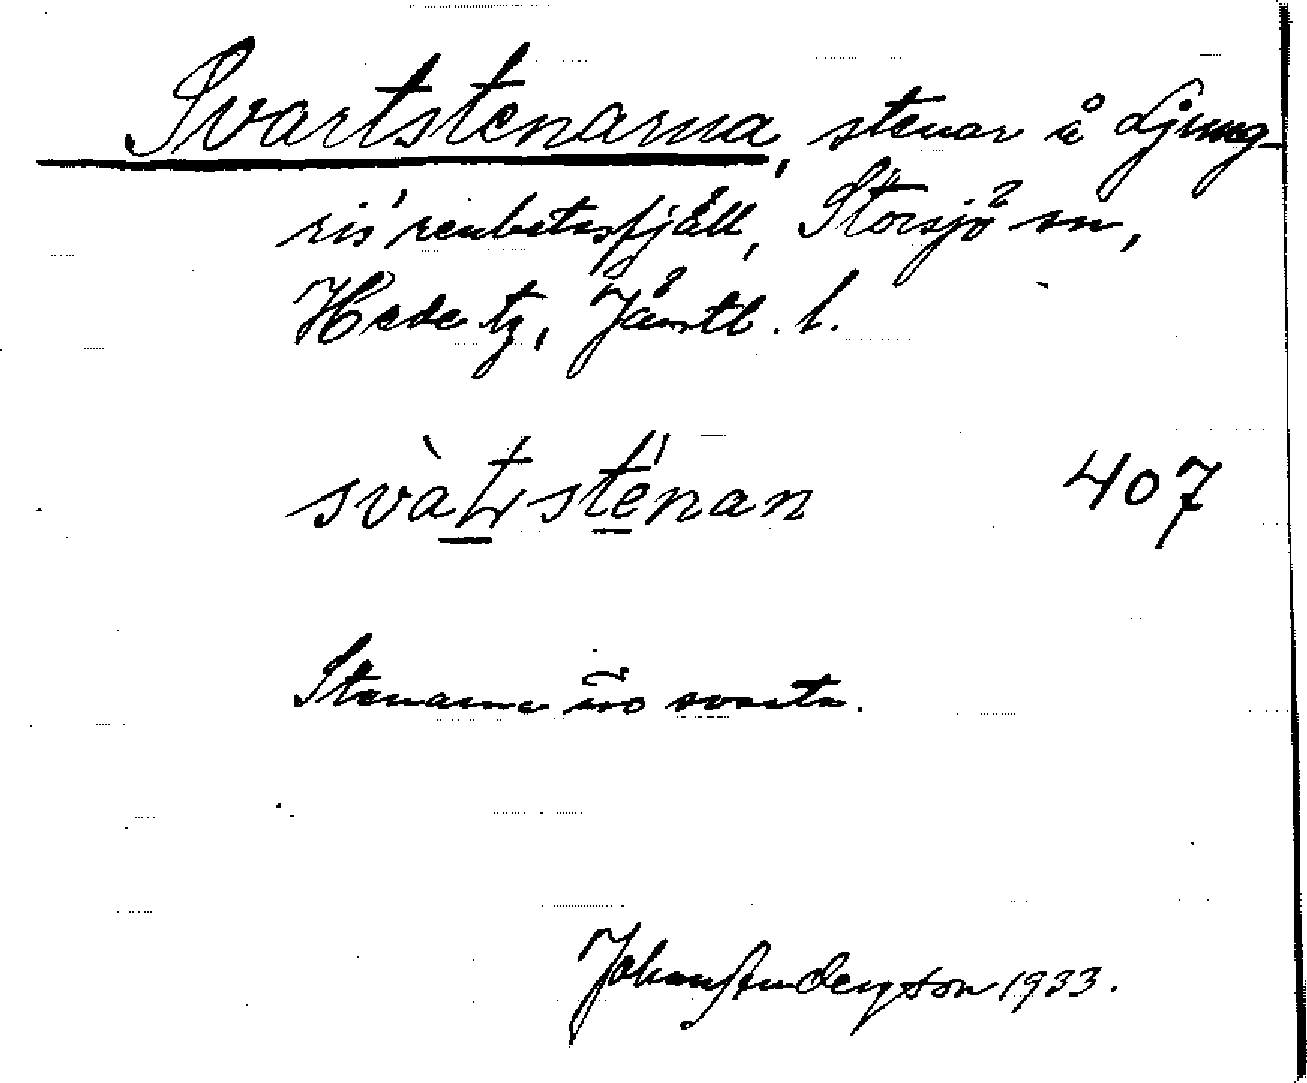 Svartstenarna, stenar å Ljung-
ris' renbetesfjäll, Storsjö sn,
Hede tg, Jämtl. l.
svàʈsténan 407
Stenarna äro svarta.
Johan Anderzson 1933.